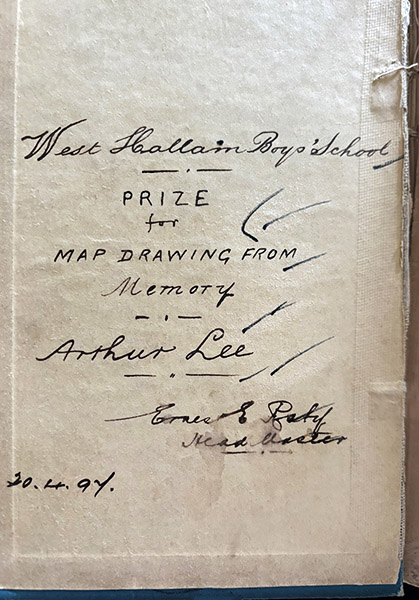 West Hallam Boys' School
PRIZE
for
MAP DRAWING FROM
Memory
Arthur Lee
E
Head Master
20.4.97.